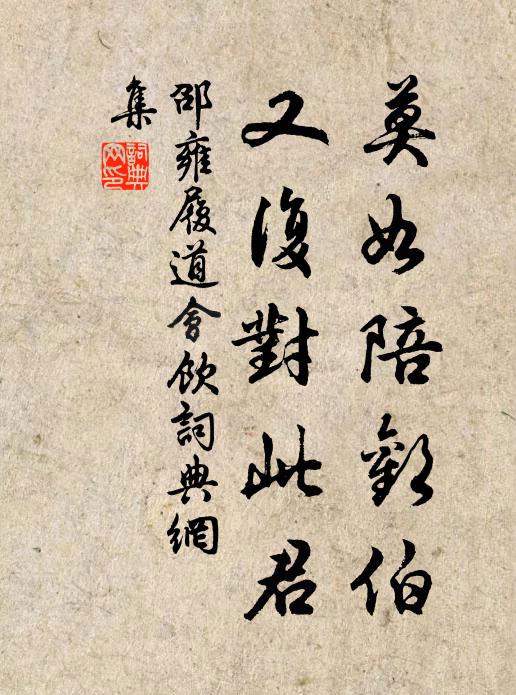 莫如陪歡伯
又復對此君
邵雍履道會飲詞典網
集
詞典
网印